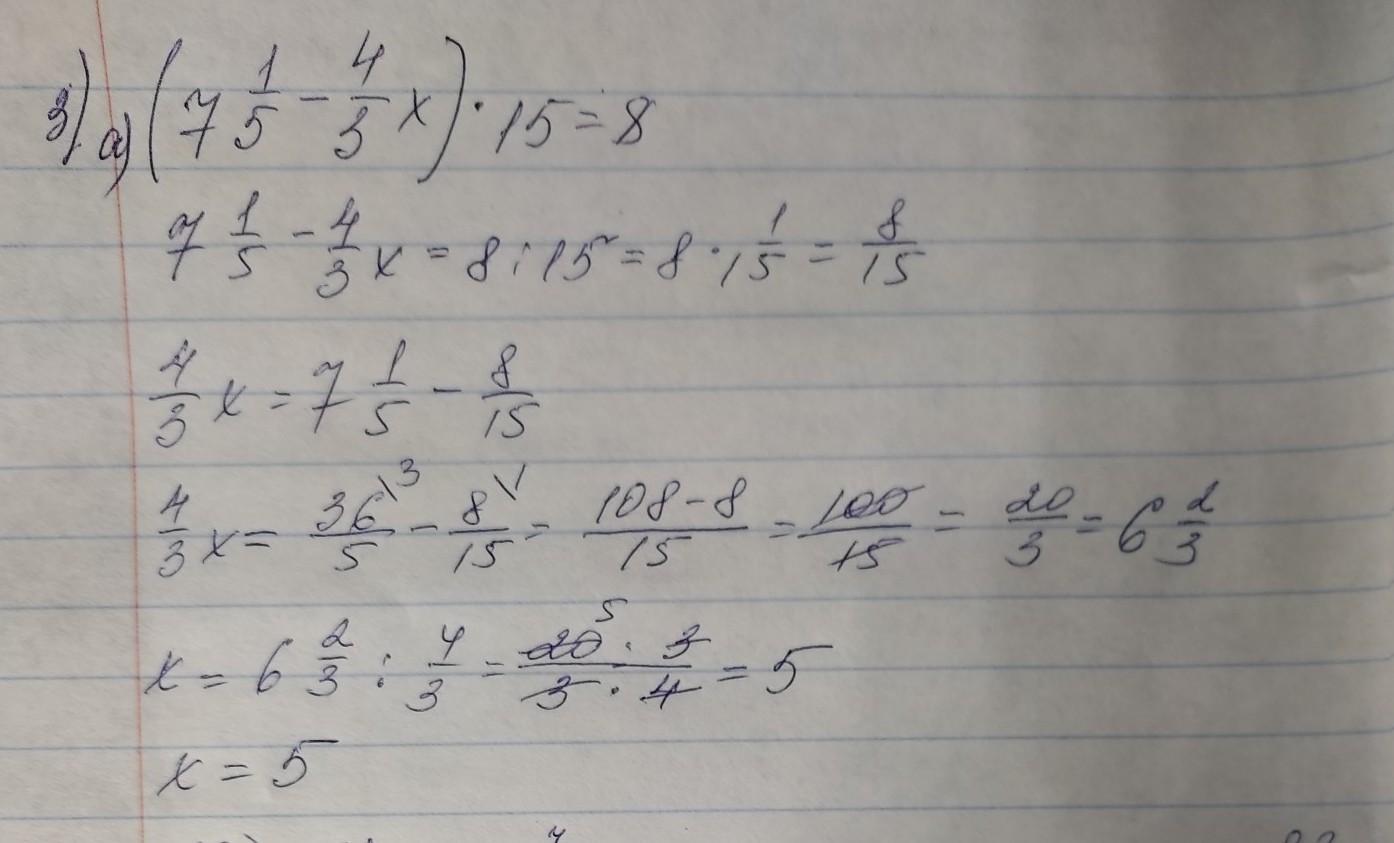 3) а) (7 1/5 - 4/3 x) · 15 = 8
7 1/5 - 4/3 x = 8 : 15 = 8 · 1/15 = 8/15
4/3 x = 7 1/5 - 8/15
4/3 x = 36\3/5 - 8\1/15 = 108-8/15 = 100/15 = 20/3 = 6 2/3
x = 6 2/3 : 4/3 = 20 5 · 3/3 · 4 = 5
x = 5